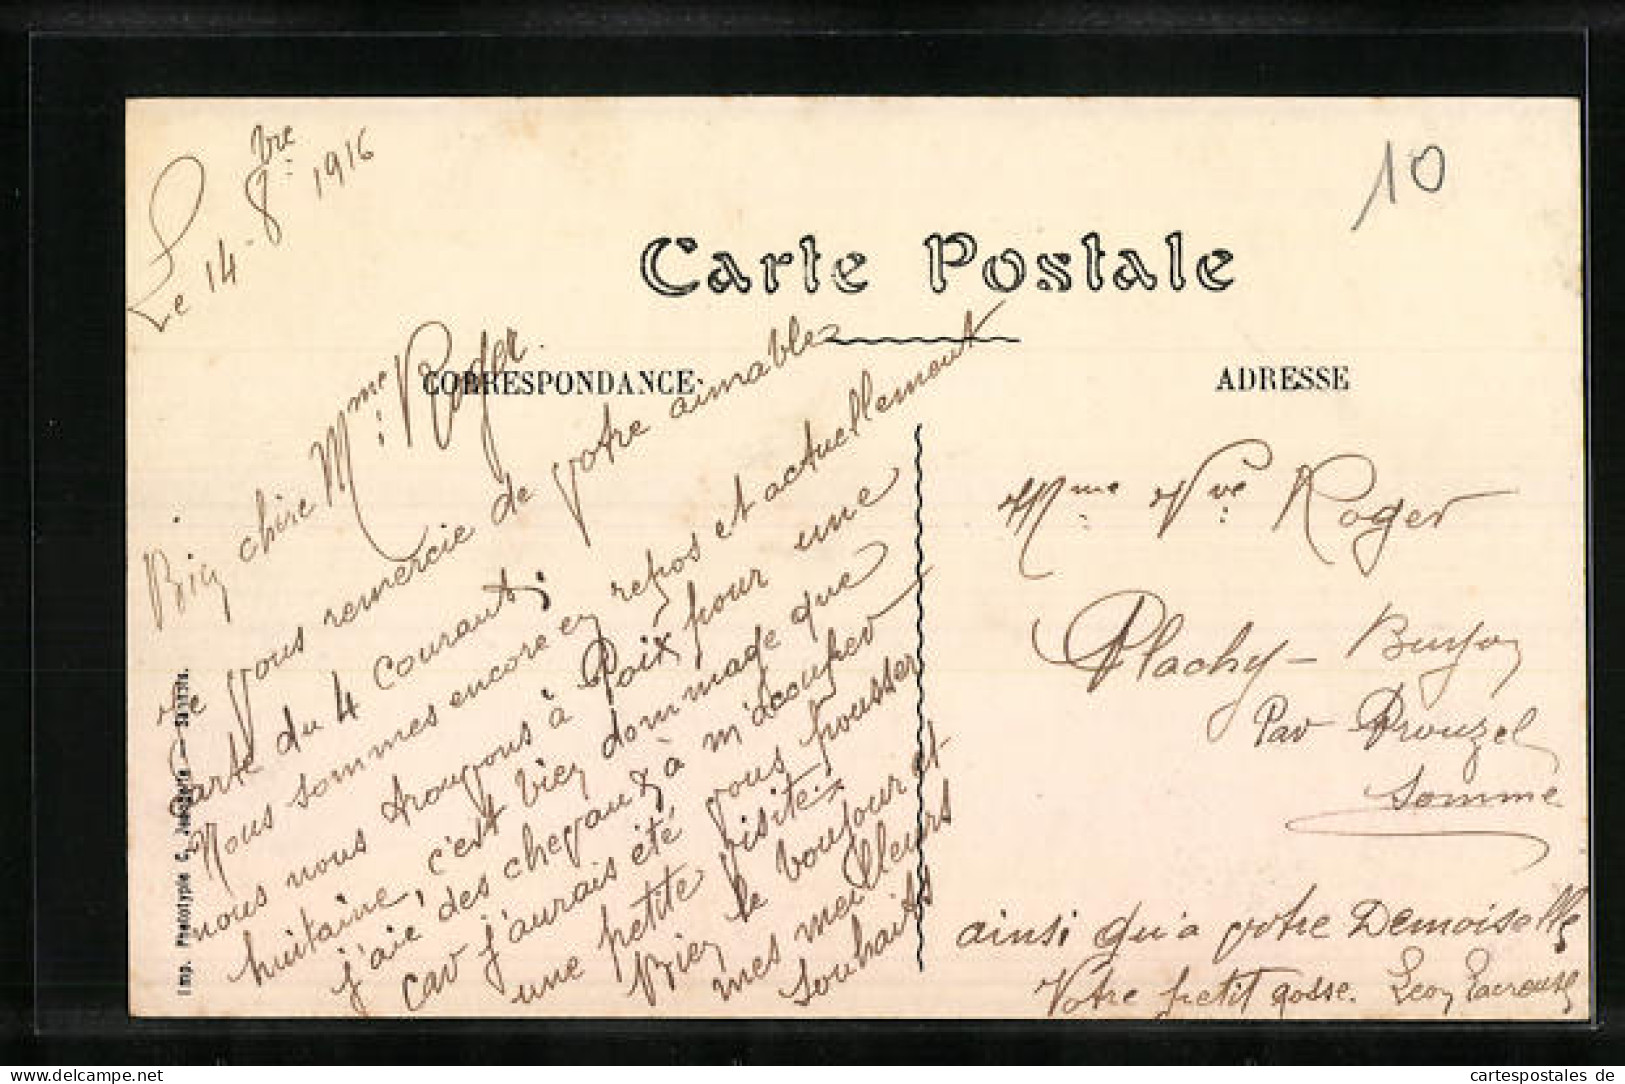 Le 14 - 8bre 1916
10
Carte Postale
CORRESPONDANCE
ADRESSE
Bien chère Mme Roger.
Je vous remercie de votre aimable
carte du 4 courant;
Nous sommes encore en repos et actuellement
nous nous trouvons à Poix pour une
huitaine, c'est bien dommage que
j'aie des chevaux à m'occuper
car j'aurais été vous pousser
une petite visite.
Bien le bonjour et
mes meilleurs
souhaits
Mme Vve Roger
Plachy - Buyon
Par Prouzel
Somme
ainsi qu'a votre Demoiselle
Votre petit gosse. Leon
Imp. Phototypie C.
cartespostales de